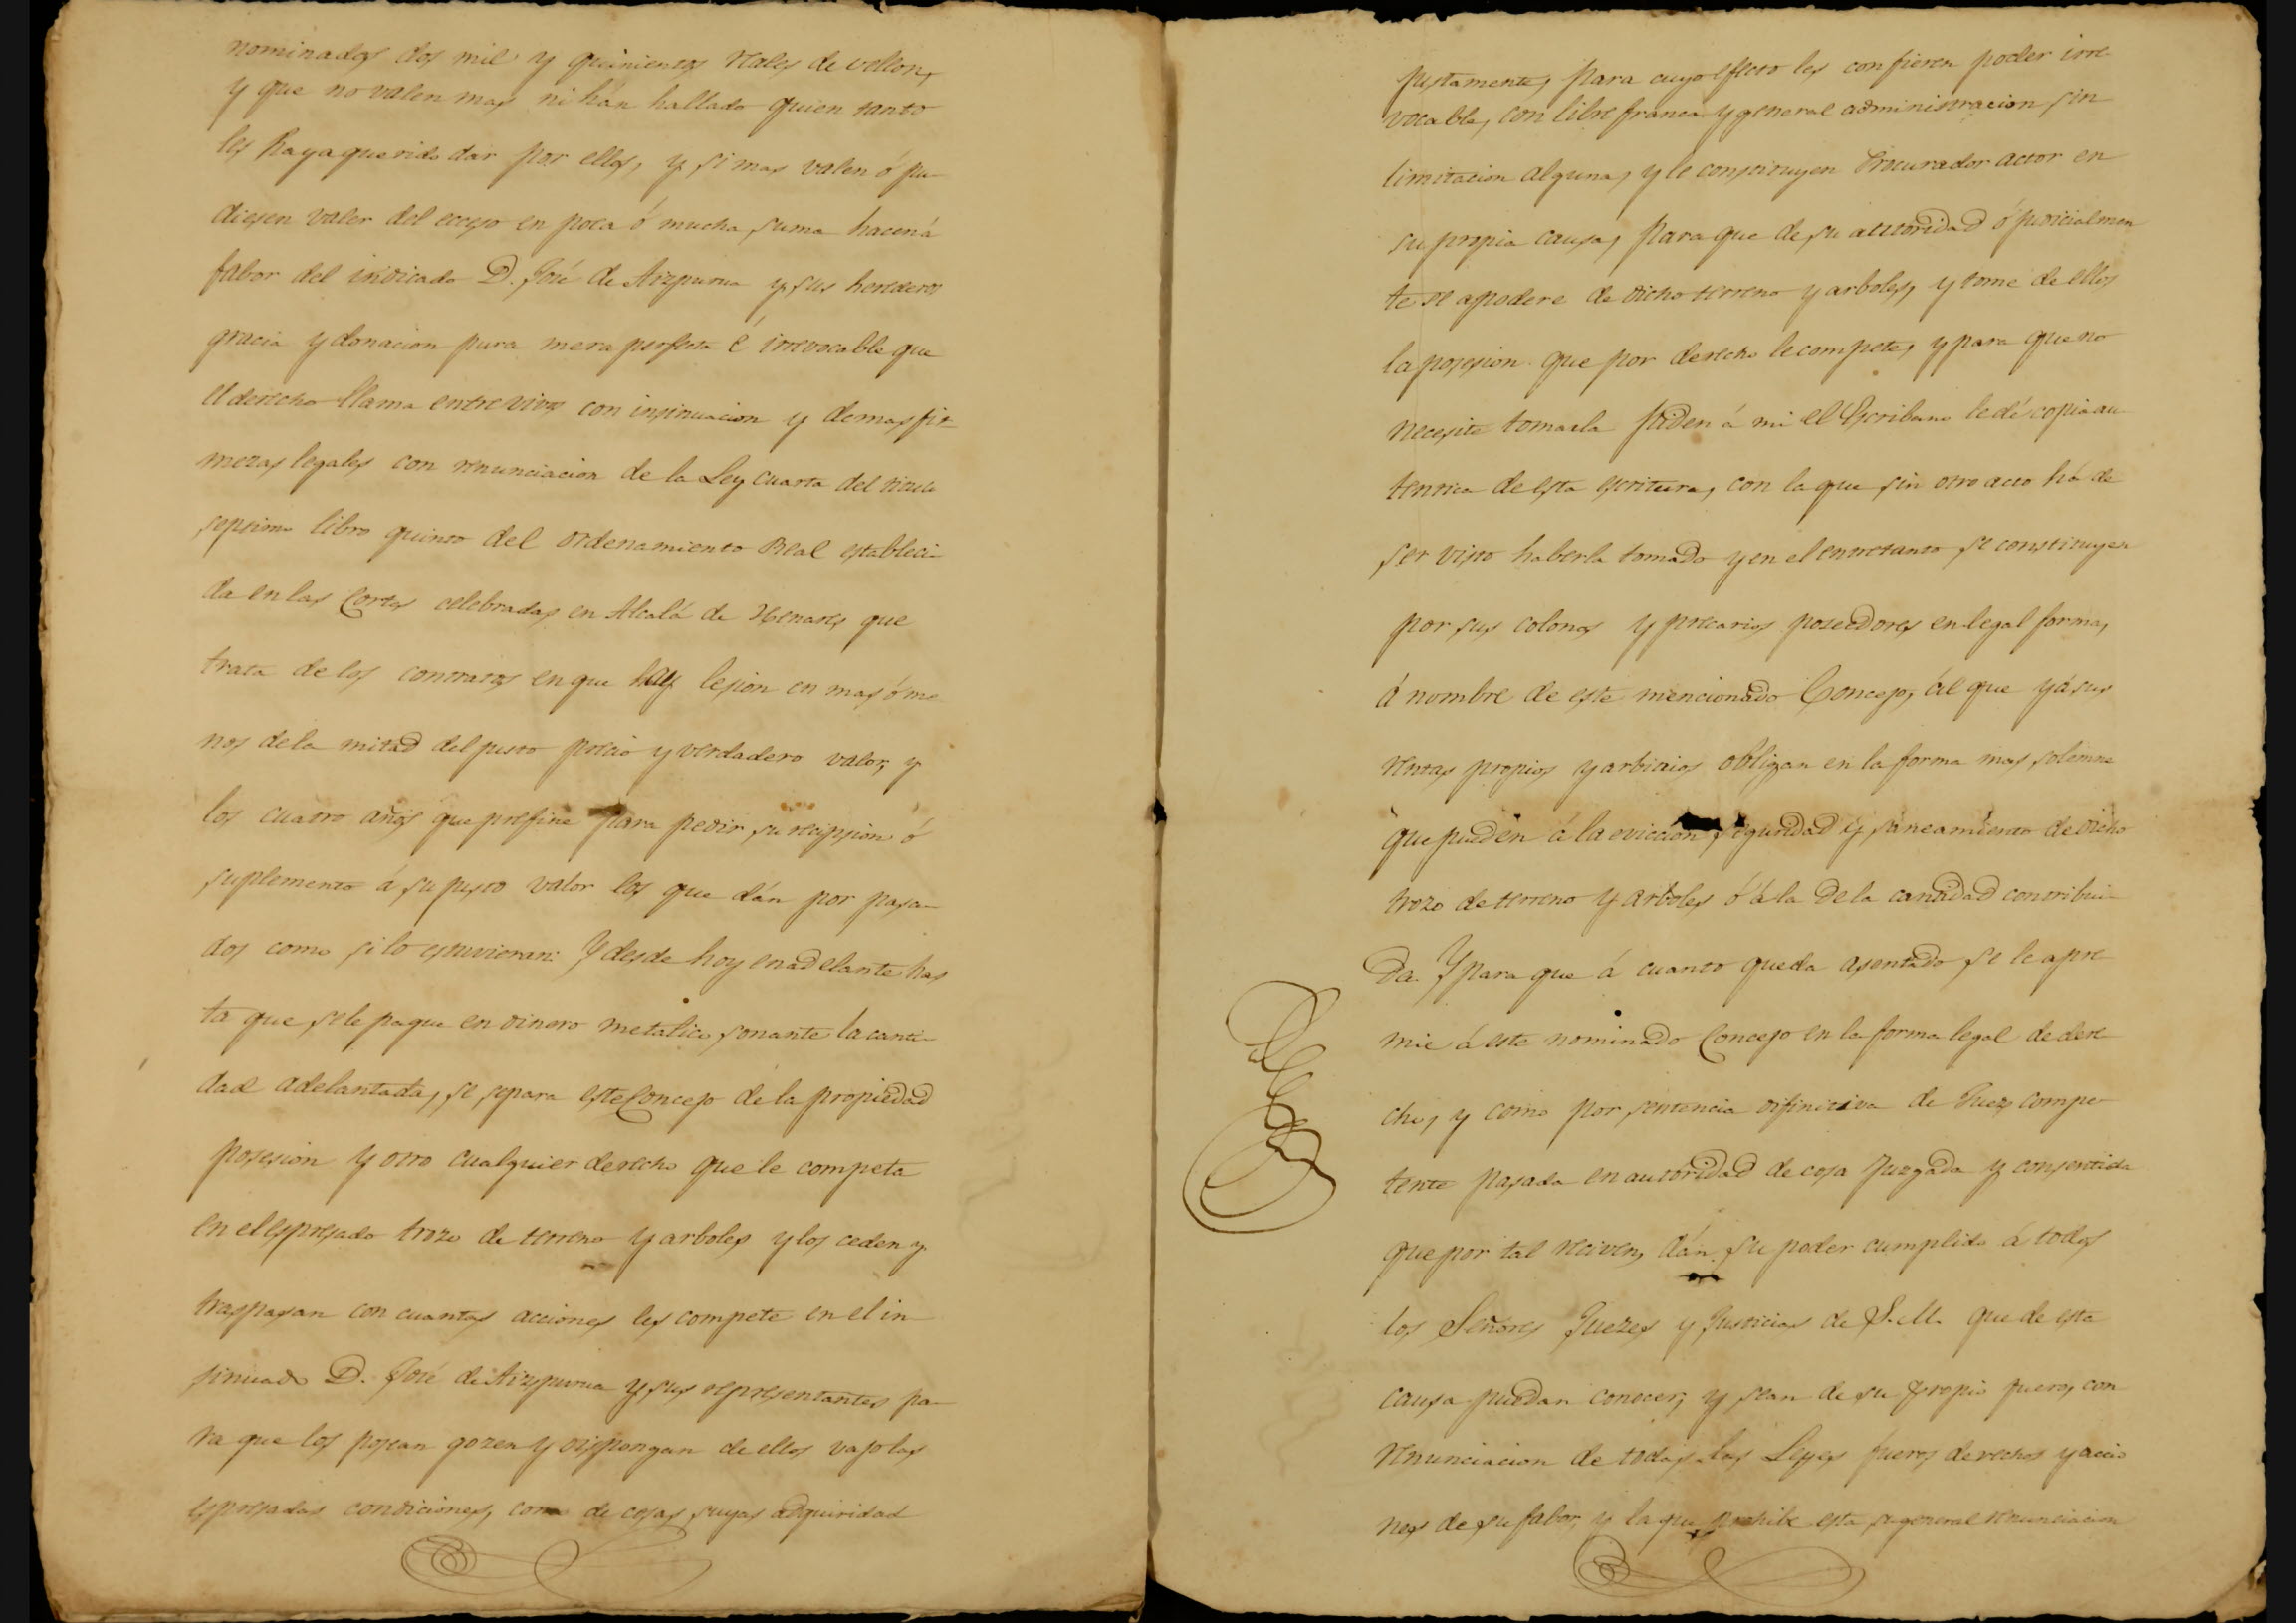 nominados dos mil y quinientos reales de vellon,
y que no valen mas ni hán hallado quien tanto
les haya querido dar por ellos, y si mas valen ó pu-
diesen valer del ecceso en poca ó mucha suma hacen á
fabor del indicado D. José de Aizpurua y sus herederos
gracia y donacion pura mera perfecta é irrevocable que
el derecho llama entre vivos con insinuacion y demas fir-
mezas legales con renunciacion de la Ley cuarta del titulo
septimo libro quinto del ordenamiento Real estableci-
da en las Cortes celebradas en Alcalá de Henares que
trata de los contratos en que hay lesion en mas ó me-
nos de la mitad del justo precio y verdadero valor, y
los cuatro años que prefine para pedir su recission ó
suplemento á su justo valor los que dán por pasa-
dos como si lo estuvieran: Y desde hoy en adelante has
ta que se le pague en dinero metalico sonante la canti-
dad adelantada, se separa este Concejo de la propiedad
posesion y otro cualquier derecho que le competa
en el espresado trozo de terreno y arboles y los ceden y
traspasan con cuantas acciones les compete en el in-
sinuado D. José de Aizpurua y sus representantes pa-
ra que los posean gozen y dispongan de ellos vajo las
espresadas condiciones, como de cosas suyas adquiridas
justamente, para cuyo efecto les confieren poder irre-
vocable, con libre franca y general administracion sin
limitacion alguna, y le constituyen Procurador actor en
su propia causa, para que de su autoridad ó judicialmen
te se apodere de dicho terreno y arboles, y tome de ellos
la posesion que por derecho le compete, y para que no
necesite tomarla piden á mi el Escribano le dé copia au
tentica de esta escritura, con la que sin otro acto há de
ser visto haberla tomado y en el entretanto se constituyen
por sus colonos y precarios poseedores en legal forma,
á nombre de este mencionado Concejo, ál que y á sus
rentas propios y arbitrios obligan en la forma mas solemne
que pueden á la eviccion seguridad y saneamiento de dicho
trozo de terreno y arboles ó á la de la cantidad contribui-
da. Y para que á cuanto queda asentado se le apre-
mie á este nominado Concejo en la forma legal de dere-
cho, y como por sentencia difinitiva de Juez compe-
tente pasada en autoridad de cosa Juzgada y consentida
que por tal reciven, dán su poder cumplido á todos
los Señores Juezes y Justicias de S. M. que de esta
causa puedan conocer, y sean de su propio fuero, con
renunciacion de todas las Leyes fueros derechos y accio
nes de su fabor, y la que prohibe esta su general renunciacion